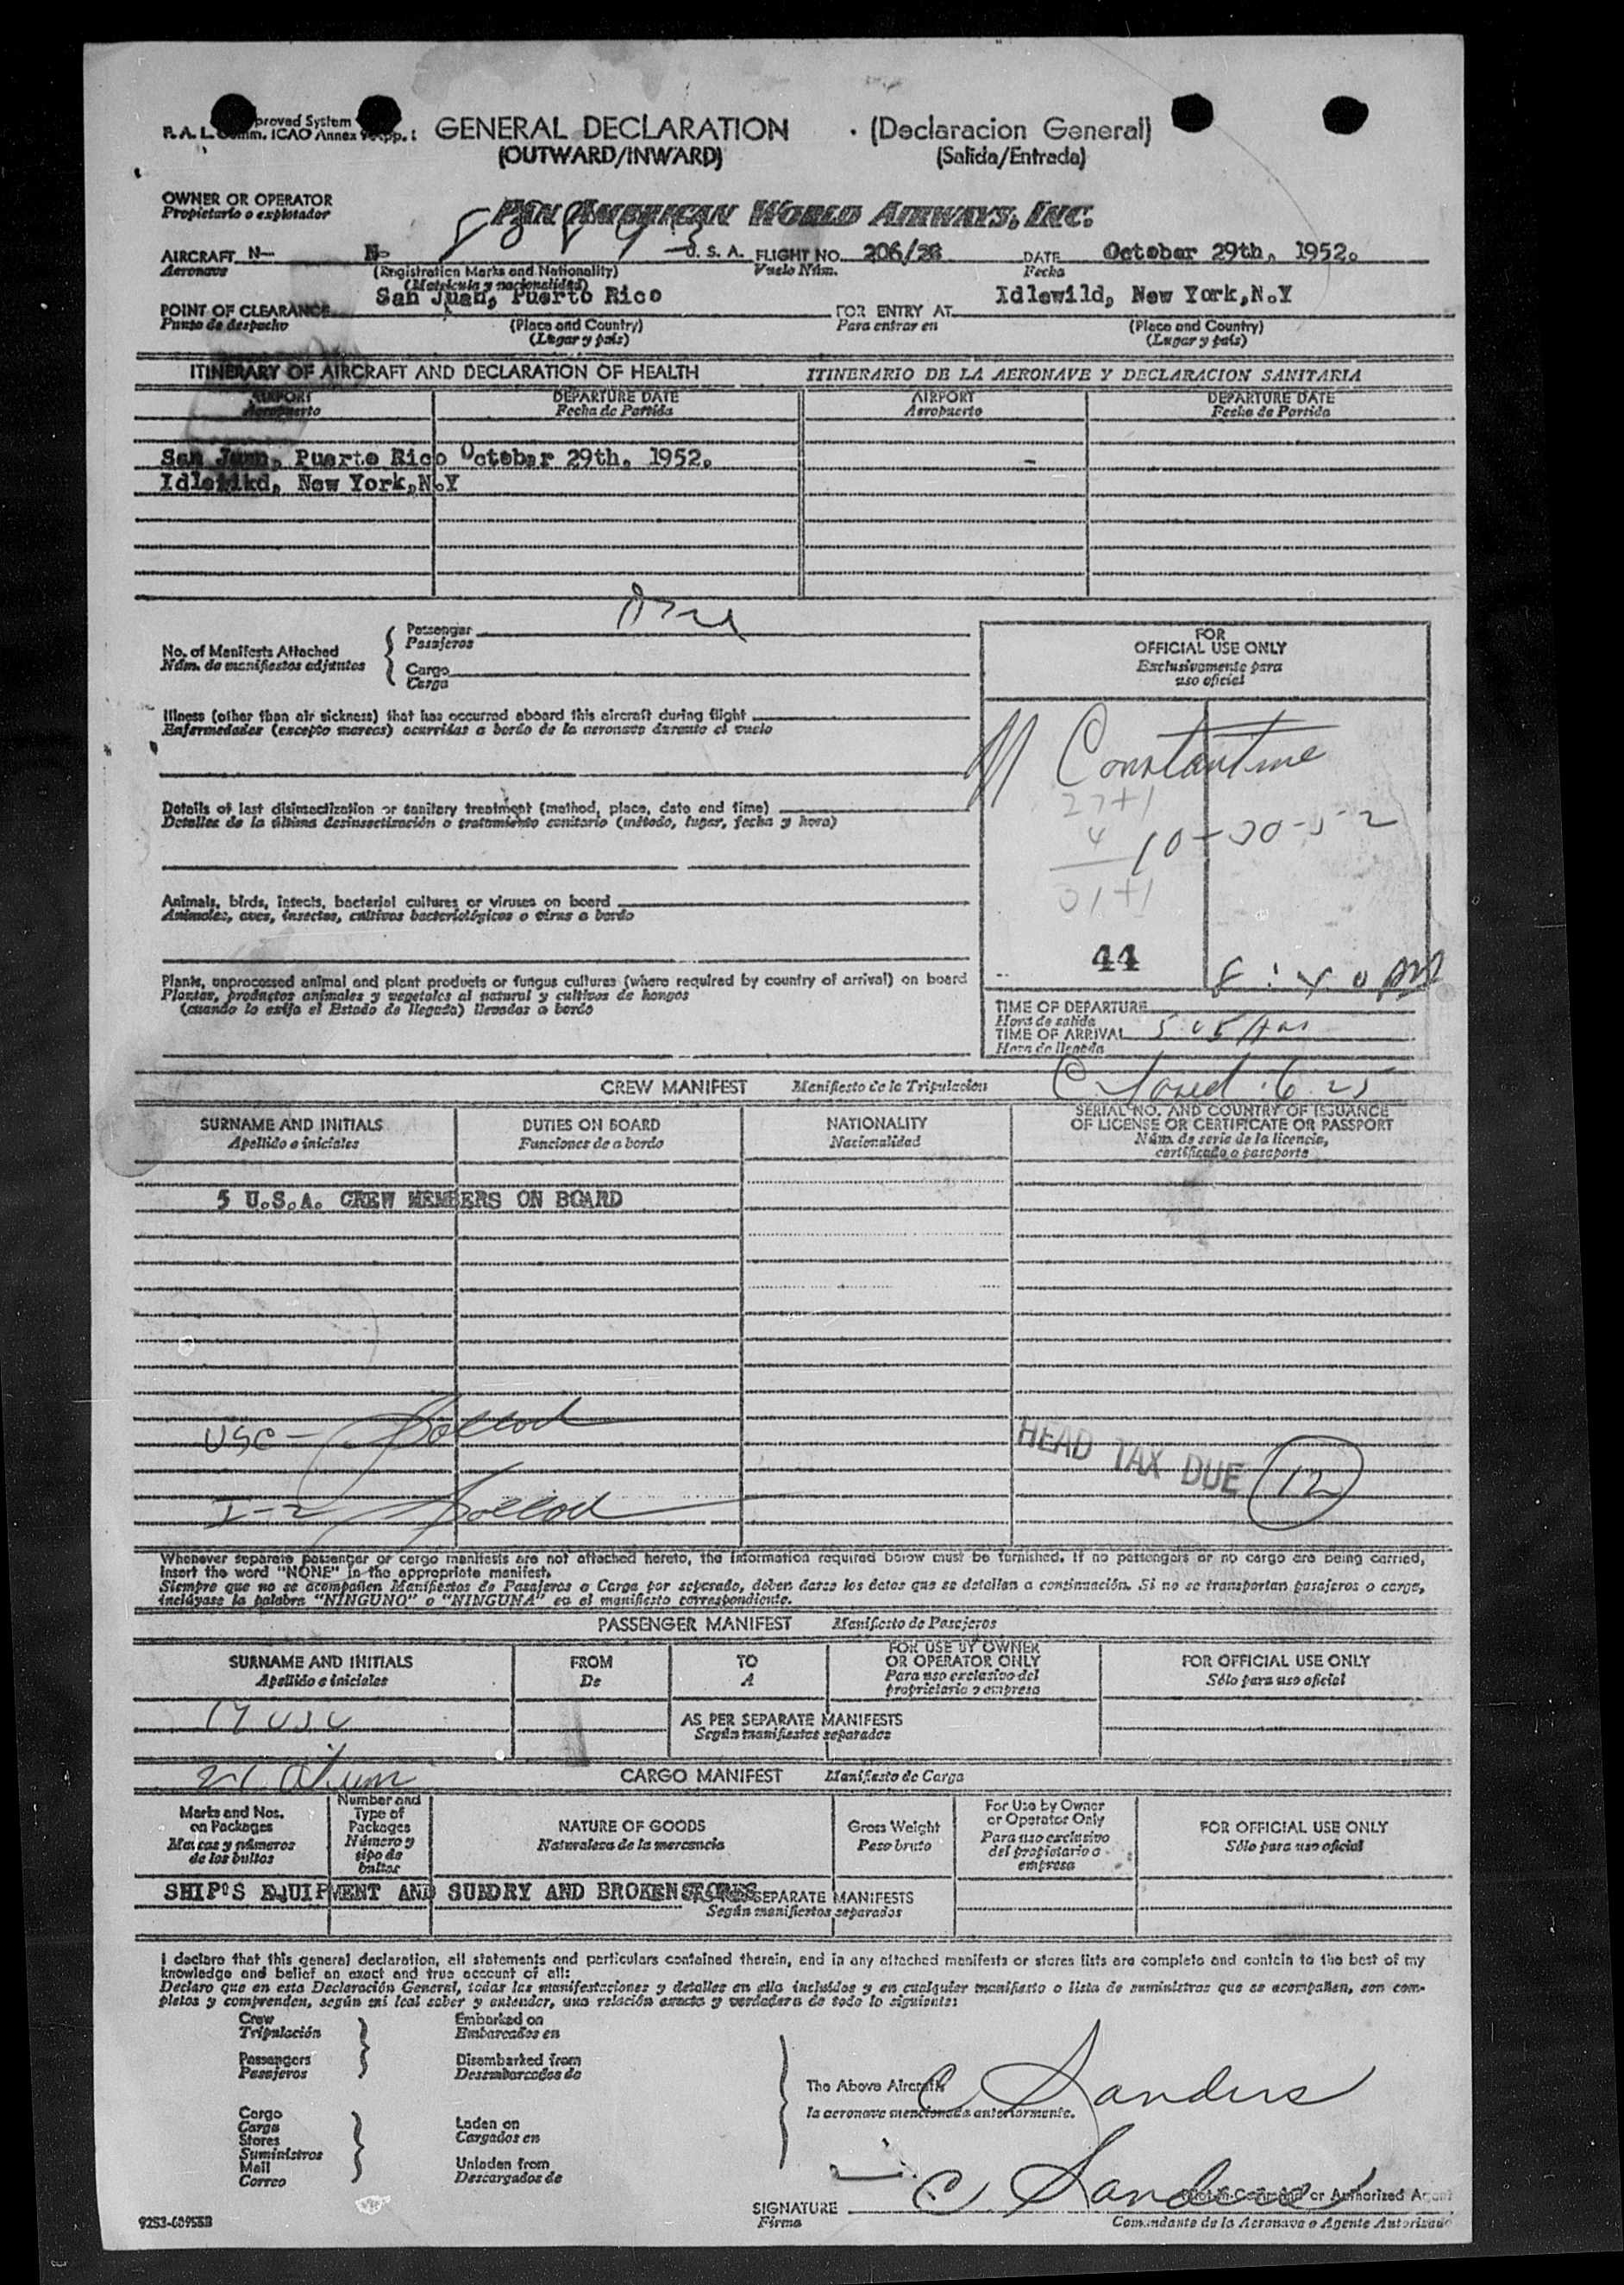 proved System
P. A. L. Comm. ICAO Annex 9 App. 1
GENERAL DECLARATION . (Declaracion General)
(OUTWARD/INWARD) (Salida/Entrada)
OWNER OR OPERATOR
Propietario o explotador
PAN AMERICAN WORLD AIRWAYS, INC.
AIRCRAFT N- N- U. S. A. FLIGHT NO. 206/28 DATE October 29th, 1952.
Aeronave (Registration Marks and Nationality) Vuelo Núm. Fecha
(Matricula y nacionalidad)
San Juan, Puerto Rico Idlewild, New York,N.Y
POINT OF CLEARANCE FOR ENTRY AT
Punto de despacho (Place and Country) Para entrar en (Place and Country)
(Lugar y país) (Lugar y país)
ITINERARY OF AIRCRAFT AND DECLARATION OF HEALTH ITINERARIO DE LA AERONAVE Y DECLARACION SANITARIA
AIRPORT DEPARTURE DATE AIRPORT DEPARTURE DATE
Aeropuerto Fecha de Partida Aeropuerto Fecha de Partida
San Juan, Puerto Rico October 29th, 1952.
Idlewikd, New York,N.Y
No. of Manifests Attached
Núm. de manifiestos adjuntos
Passenger
Pasajeros
Cargo
Carga
FOR
OFFICIAL USE ONLY
Exclusivamente para
uso oficial
Illness (other than air sickness) that has occurred aboard this aircraft during flight
Enfermedades (excepto mareos) ocurridas a bordo de la aeronave durante el vuelo
Constantine
27+1
4
10-30-52
31+1
Details of last disinsectization or sanitary treatment (method, place, date and time)
Detalles de la última desinsectización o tratamiento sanitario (método, lugar, fecha y hora)
Animals, birds, insects, bacterial cultures or viruses on board
Animales, aves, insectos, cultivos bacteriológicos o virus a bordo
44
8:40 PM
Plants, unprocessed animal and plant products or fungus cultures (where required by country of arrival) on board
Plantas, productos animales y vegetales al natural y cultivos de hongos
(cuando lo exija el Estado de llegada) llevados a bordo
TIME OF DEPARTURE
Hora de salida
TIME OF ARRIVAL 5 05 AM
Hora de llegada
CREW MANIFEST Manifiesto de la Tripulacion
SURNAME AND INITIALS DUTIES ON BOARD NATIONALITY SERIAL NO. AND COUNTRY OF ISSUANCE
OF LICENSE OR CERTIFICATE OR PASSPORT
Apellido e iniciales Funciones de a bordo Nacionalidad Núm. de serie de la licencia,
certificado o pasaporte
5 U.S.A. CREW MEMBERS ON BOARD
USC -
HEAD TAX DUE 12
I-2
Whenever separate passenger or cargo manifests are not attached hereto, the information required below must be furnished. If no passengers or no cargo are being carried,
insert the word "NONE" in the appropriate manifest.
Siempre que no se acompañen Manifiestos de Pasajeros o Carga por separado, deben darse los datos que se detallan a continuación. Si no se transportan pasajeros o carga,
inclúyase la palabra "NINGUNO" o "NINGUNA" en el manifiesto correspondiente.
PASSENGER MANIFEST Manifiesto de Pasajeros
SURNAME AND INITIALS FROM TO FOR USE BY OWNER
OR OPERATOR ONLY FOR OFFICIAL USE ONLY
Apellido e iniciales De A Para uso exclusivo del
propietario o empresa Sólo para uso oficial
AS PER SEPARATE MANIFESTS
Según manifiestos separados
CARGO MANIFEST Manifiesto de Carga
Marks and Nos.
on Packages
Marcas y números
de los bultos
Number and
Type of
Packages
Número y
tipo de
bultos
NATURE OF GOODS
Naturaleza de la mercancia
Gross Weight
Peso bruto
For Use by Owner
or Operator Only
Para uso exclusivo
del propietario o
empresa
FOR OFFICIAL USE ONLY
Sólo para uso oficial
SHIP'S EQUIPMENT AND SUNDRY AND BROKEN STORES SEPARATE MANIFESTS
Según manifiestos separados
I declare that this general declaration, all statements and particulars contained therein, and in any attached manifests or stores lists are complete and contain to the best of my
knowledge and belief an exact and true account of all:
Declaro que en esta Declaración General, todas las manifestaciones y detalles en ella incluídos y en cualquier manifiesto o lista de suministros que se acompañen, son com-
pletos y comprenden, según mi leal saber y entender, una relación exacta y verdadera de todo lo siguiente:
Crew Embarked on
Tripulación Embarcados en
Passengers Disembarked from
Pasajeros Desembarcados de
The Above Aircraft
C Sanders
la aeronave mencionada anteriormente.
Cargo
Carga Laden on
Stores Cargados en
Suministros
Mail Unladen from
Correo Descargados de
SIGNATURE C Sanders Pilot-in-Command or Authorized Agent
Firma Comandante de la Aeronave o Agente Autorizado